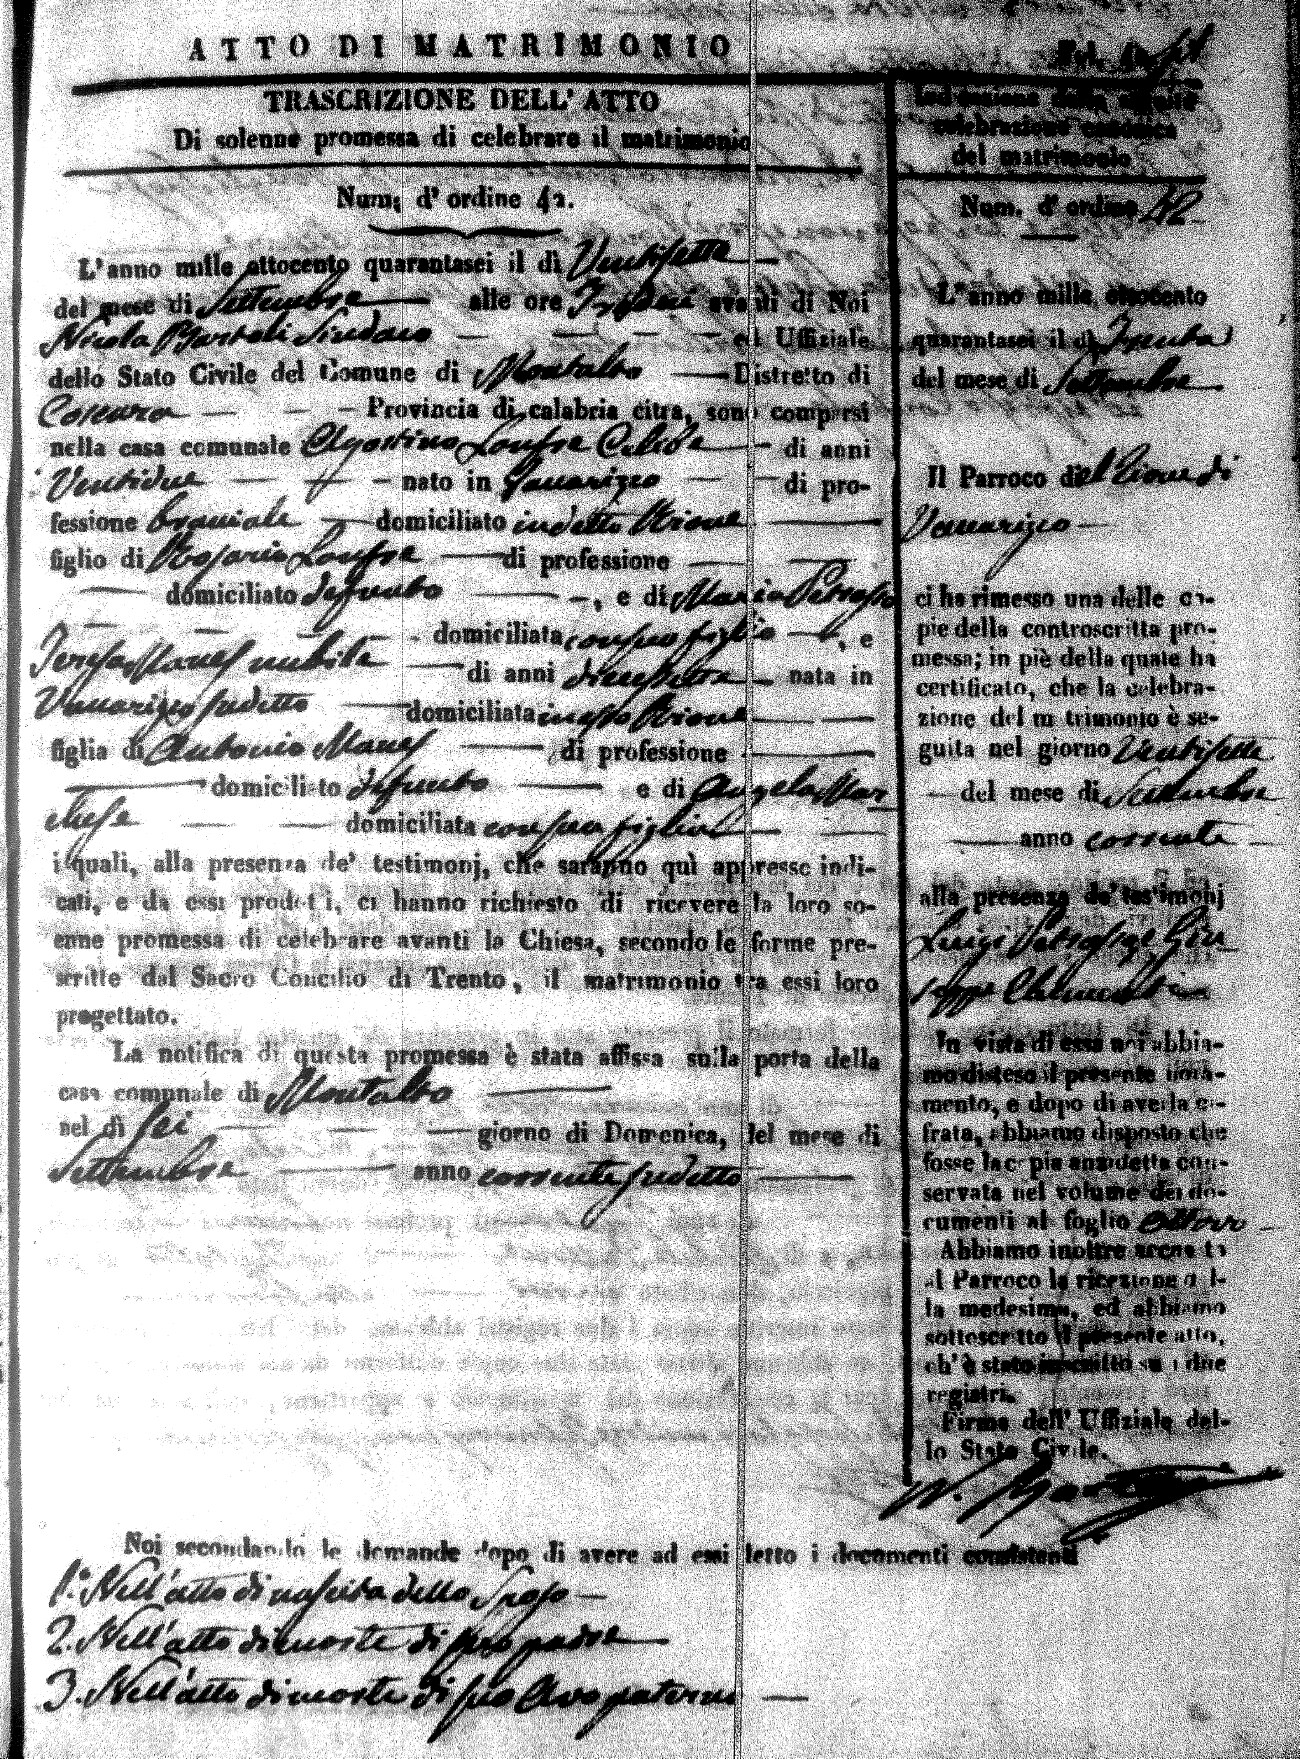 ATTO DI MATRIMONIO
TRASCRIZIONE DELL' ATTO
Di solenne promessa di celebrare il matrimonio
Num; d' ordine 42.
L'anno mille ottocento quarantasei il dì Ventisette
del mese di Settembre alle ore avanti di Noi
Nicola Bartoli Sindaco ed Uffiziale
dello Stato Civile del Comune di Montalto Distretto di
Cosenza Provincia di calabria citra, sono comparsi
nella casa comunale Agostino Celibe di anni
Ventidue nato in Vaccarizzo di pro-
fessione domiciliato in detto Rione
figlio di Rosario di professione
domiciliato defunto , e di Maria Petrasso
domiciliata con suo figlio , e
Teresa Manes nubile di anni diecisette nata in
Vaccarizzo sudetto domiciliata in esso Rione
figlia di Antonio Manes di professione
domiciliato defunto e di Angela Mar
chese domiciliata con sua figlia
i quali, alla presenza de' testimonj, che saranno quì appresso indi-
cati, e da essi prodotti, ci hanno richiesto di ricevere la loro so-
enne promessa di celebrare avanti la Chiesa, secondo le forme pre-
scritte dal Sacro Concilio di Trento, il matrimonio tra essi loro
progettato.
La notifica di questa promessa è stata affissa sulla porta della
casa comunale di Montalto
nel dì sei giorno di Domenica, del mese di
Settembre anno corrente sudetto
Noi secondando le domande dopo di avere ad essi letto i documenti consistenti
1.° Nell'atto di nascita dello Sposo
2. Nell'atto di morte di suo padre
3. Nell'atto di morte di suo Avo paterno
Indicazione della seguita
celebrazione canonica
del matrimonio
Num. d' ordine 42
L'anno mille ottocento
quarantasei il dì Trenta
del mese di Settembre
Il Parroco del Rione di
Vaccarizzo
ci ha rimesso una delle co-
pie della controscritta pro-
messa; in piè della quale ha
certificato, che la celebra-
zione del matrimonio è se-
guita nel giorno Ventisette
del mese di Settembre
anno corrente
alla presenza de' testimonj
Luigi Petrassi e Giu
seppe
In vista di essa noi abbia-
mo disteso il presente nota-
mento, e dopo di averla ci-
frata, abbiamo disposto che
fosse la copia anzidetta con-
servata nel volume dei do-
cumenti al foglio
Abbiamo inoltre accusata
al Parroco la ricezione del-
la medesima, ed abbiamo
sottoscritto il presente atto,
ch' è stato inscritto su i due
registri.
Firma dell' Uffiziale del-
lo Stato Civile.
N. Bartoli